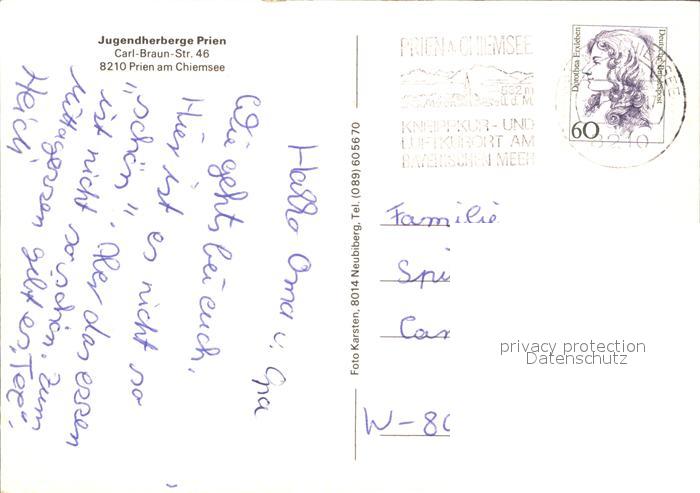 Jugendherberge Prien
Carl-Braun-Str. 46
8210 Prien am Chiemsee
Hallo Oma u. Opa
Wie gehts bei euch.
Hier ist es nicht so
"schön". Aber das essen
ist nicht so schön. Zum
Mittagessen gibt es "Tee".
Heidi
Foto Karsten, 8014 Neubiberg, Tel. (089) 60 56 70
PRIEN A CHIEMSEE
532 m
ü. d. M.
KNEIPPKUR - UND
LUFTKURORT AM
BAYERISCHEN MEER
Dorothea Erxleben
Deutsche Bundespost
60
8210
Familie
Spi
Car
W-80
privacy protection
Datenschutz